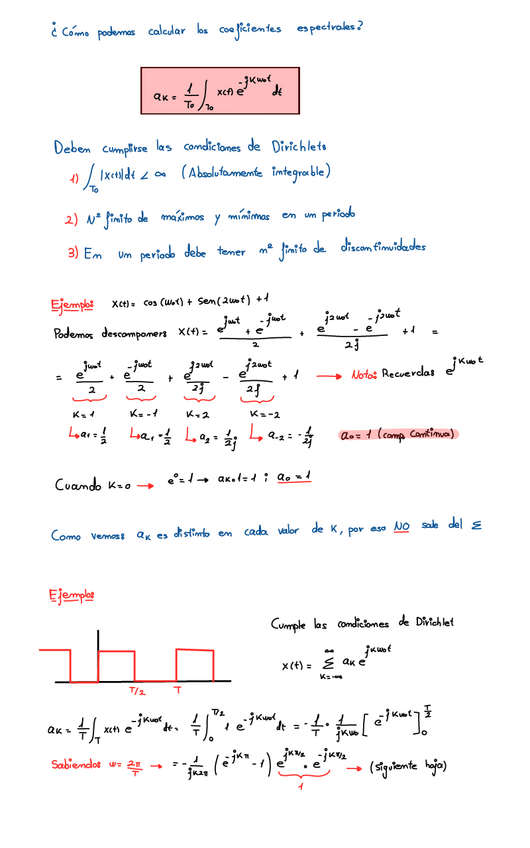 ¿ Cómo podemos calcular los coeficientes espectrales?
aK = 1/To ∫To x(t) e^-jKwot dt
Deben cumplirse las condiciones de Dirichlets
1) ∫To |x(t)|dt < ∞ (Absolutamente integrable)
2) Nº finito de máximos y mínimos en un periodo
3) En un periodo debe tener nº finito de discontinuidades
Ejemplo: x(t) = cos (wot) + sen(2wot) +1
Podemos descomponers x(t) = (e^jwot + e^-jwot)/2 + (e^j2wot - e^-j2wot)/2j +1 =
= e^jwot/2 + e^-jwot/2 + e^j2wot/2j - e^-j2wot/2j + 1 → Nota: Recuerdas e^jKwot
K=1 K=-1 K=2 K=-2
a1 = 1/2 a-1 = 1/2 a2 = 1/2j a-2 = -1/2j a0=1 (comp Continua)
Cuando K=0 → e^0=1 → aK·1=1 ; a0 = 1
Como vemos: aK es distinto en cada valor de K, por eso NO sale del Σ
Ejemplos
Cumple las condiciones de Dirichlet
x(t) = Σ K=-∞ ∞ aK e^jKwot
T/2 T
aK = 1/T ∫T x(t) e^-jKwot dt = 1/T ∫0 T/2 1 e^-jKwot dt = -1/T · 1/jKwo [e^-jKwot] T/2 0
Sabiendos w= 2π/T → = -1/jK2π (e^-jKπ - 1) e^jKπ/2 · e^-jKπ/2 → (siguiente hoja)
1